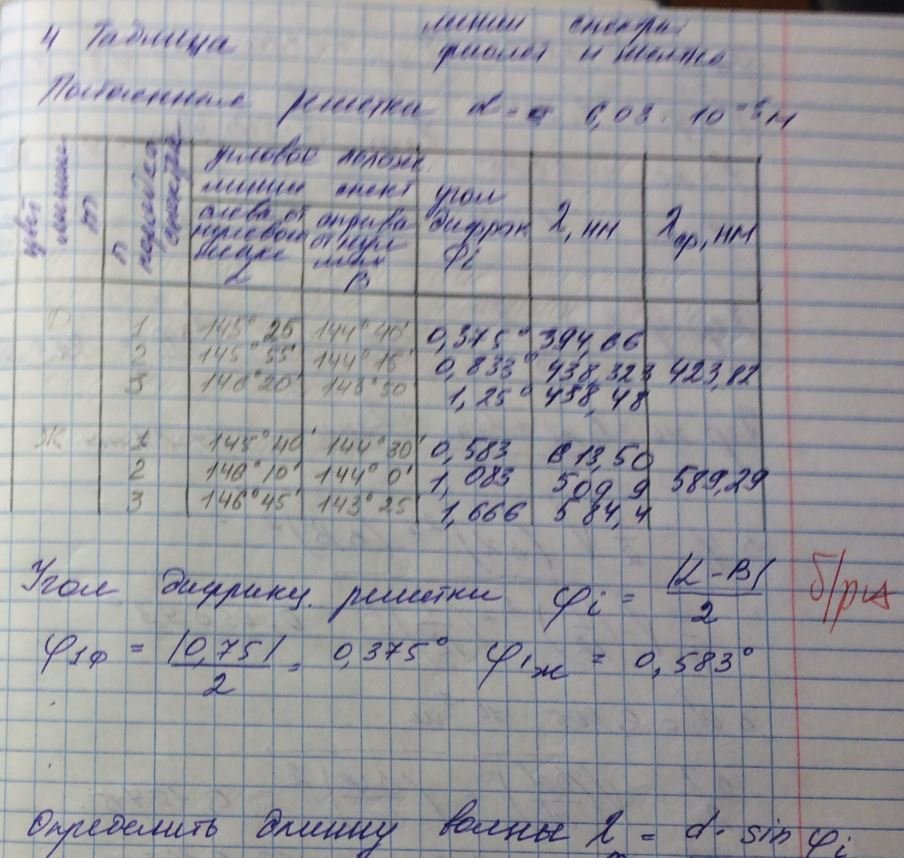 4 Таблица
линии спектра
фиолет и желто
Постоянная решетки d = 6,03 · 10⁻⁵ м
цвет линии m
n порядка спектра
угловое полож. линии спект
слева от нулевого макс α
справа от нул max β
угол дифрак φi
λ, нм
λср, нм
Ф 1 145°25 144°40' 0,375° 394,66
2 145°55' 144°15' 0,833° 438,323 423,82
3 146°20' 143°50 1,25° 438,48
Ж 1 145°40' 144°30' 0,583 613,50
2 146°10' 144°0' 1,083 569,9 589,29
3 146°45' 143°25' 1,666 584,4
Угол дифракц. решетки φi = |α-β| / 2
б/рид
φ1ф = |0,75| / 2 = 0,375° φ1ж = 0,583°
Определить длинну волны λ = d · sin φi